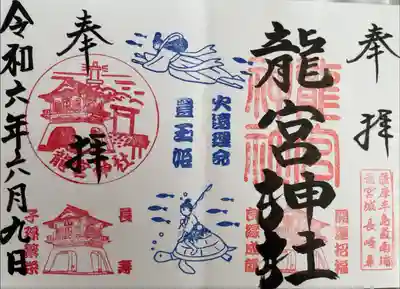 奉拝
薩摩半島最南端
龍宮城 長崎鼻
龍宮神社
龍宮
神社
開運招福
良縁成就
火遠理命
豊玉姫
奉拝
龍宮神社
長寿
子孫繁栄
令和六年六月九日